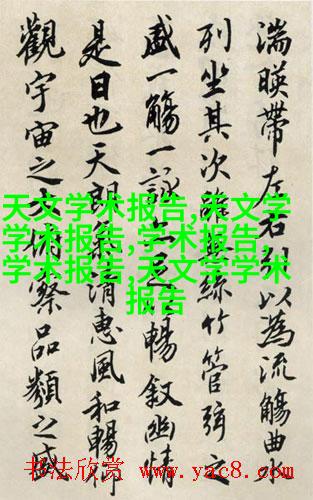 湍暎帶左右引以為流觴曲水
列坐其次雖無絲竹管弦之
盛一觴一詠亦足以暢敘幽情
是日也天朗氣清惠風和暢仰
觀宇宙之大俯察品類之盛
天文学术报告,天文学
学术报告,学术报告,
学术报告,天文学学术
报告
书法欣赏 www.yac8.com